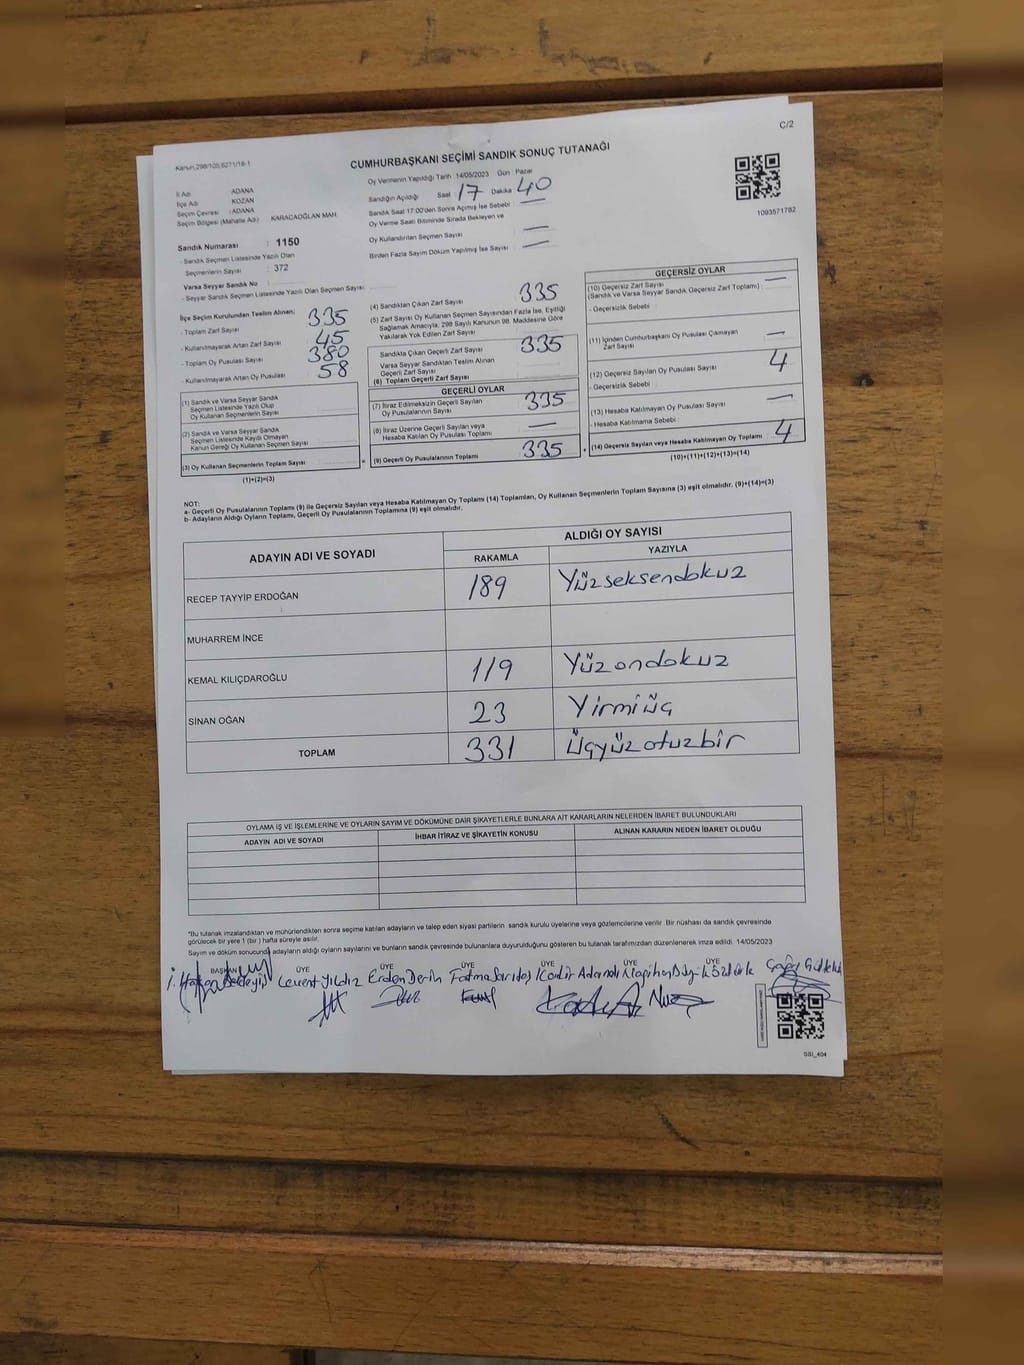 C/2
Kanun,298/105,6271/18-1
CUMHURBAŞKANI SEÇİMİ SANDIK SONUÇ TUTANAĞI
1093571782
İl Adı : ADANA
İlçe Adı : KOZAN
Seçim Çevresi : ADANA
Seçim Bölgesi (Mahalle Adı) : KARACAOĞLAN MAH.
Oy Vermenin Yapıldığı Tarih 14/05/2023 Gün : Pazar
Sandığın Açıldığı Saat 17 Dakika 40
Sandık Saat 17:00'den Sonra Açmış İse Sebebi : —
Oy Verme Saati Bitiminde Sırada Bekleyen ve
Oy Kullandırılan Seçmen Sayısı —
Birden Fazla Sayım Döküm Yapılmış İse Sayısı —
Sandık Numarası : 1150
- Sandık Seçmen Listesinde Yazılı Olan
Seçmenlerin Sayısı : 372
Varsa Seyyar Sandık No
- Seyyar Sandık Seçmen Listesinde Yazılı Olan Seçmen Sayısı
İlçe Seçim Kurulundan Teslim Alınan;
- Toplam Zarf Sayısı 335
- Kullanılmayarak Artan Zarf Sayısı 45
- Toplam Oy Pusulası Sayısı 380
- Kullanılmayarak Artan Oy Pusulası 58
(1) Sandık ve Varsa Seyyar Sandık
Seçmen Listesinde Yazılı Olup
Oy Kullanan Seçmenlerin Sayısı
(2) Sandık ve Varsa Seyyar Sandık
Seçmen Listesinde Kayıtlı Olmayan
Kanun Gereği Oy Kullanan Seçmen Sayısı
(3) Oy Kullanan Seçmenlerin Toplam Sayısı =
(1)+(2)=(3)
(4) Sandıktan Çıkan Zarf Sayısı 335
(5) Zarf Sayısı Oy Kullanan Seçmen Sayısından Fazla İse, Eşitliği
Sağlamak Amacıyla, 298 Sayılı Kanunun 98. Maddesine Göre
Yakılarak Yok Edilen Zarf Sayısı
Sandıkta Çıkan Geçerli Zarf Sayısı 335
Varsa Seyyar Sandıktan Teslim Alınan
Geçerli Zarf Sayısı
(6) Toplam Geçerli Zarf Sayısı
GEÇERLİ OYLAR
(7) İtiraz Edilmeksizin Geçerli Sayılan
Oy Pusulalarının Sayısı 335
(8) İtiraz Üzerine Geçerli Sayılan veya
Hesaba Katılan Oy Pusulası Toplamı —
(9) Geçerli Oy Pusulalarının Toplamı 335 +
GEÇERSİZ OYLAR
(10) Geçersiz Zarf Sayısı —
(Sandık ve Varsa Seyyar Sandık Geçersiz Zarf Toplamı) :
- Geçersizlik Sebebi :
(11) İçinden Cumhurbaşkanı Oy Pusulası Çıkmayan
Zarf Sayısı —
(12) Geçersiz Sayılan Oy Pusulası Sayısı 4
- Geçersizlik Sebebi :
(13) Hesaba Katılmayan Oy Pusulası Sayısı —
- Hesaba Katılmama Sebebi :
(14) Geçersiz Sayılan veya Hesaba Katılmayan Oy Toplamı : 4
(10)+(11)+(12)+(13)=(14)
NOT:
a- Geçerli Oy Pusulalarının Toplamı (9) ile Geçersiz Sayılan veya Hesaba Katılmayan Oy Toplamı (14) Toplamları, Oy Kullanan Seçmenlerin Toplam Sayısına (3) eşit olmalıdır. (9)+(14)=(3)
b- Adayların Aldığı Oyların Toplamı, Geçerli Oy Pusulalarının Toplamına (9) eşit olmalıdır.
ADAYIN ADI VE SOYADI ALDIĞI OY SAYISI
RAKAMLA YAZIYLA
RECEP TAYYİP ERDOĞAN 189 Yüzseksendokuz
MUHARREM İNCE
KEMAL KILIÇDAROĞLU 119 Yüzondokuz
SİNAN OĞAN 23 Yirmiüç
TOPLAM 331 Üçyüzotuzbir
OYLAMA İŞ VE İŞLEMLERİNE VE OYLARIN SAYIM VE DÖKÜMÜNE DAİR ŞİKAYETLERLE BUNLARA AİT KARARLARIN NELERDEN İBARET BULUNDUKLARI
ADAYIN ADI VE SOYADI İHBAR İTİRAZ VE ŞİKAYETİN KONUSU ALINAN KARARIN NEDEN İBARET OLDUĞU
*Bu tutanak imzalandıktan ve mühürlendikten sonra seçime katılan adayların ve talep eden siyasi partilerin sandık kurulu üyelerine veya gözlemcilerine verilir. Bir nüshası da sandık çevresinde
görülecek bir yere 1 (bir ) hafta süreyle asılır.
Sayım ve döküm sonucunda adayların aldığı oyların sayılarını ve bunların sandık çevresinde bulunanlara duyurulduğunu gösteren bu tutanak tarafımızdan düzenlenerek imza edildi. 14/05/2023
BAŞKAN ÜYE ÜYE ÜYE ÜYE ÜYE ÜYE
Levent Yıldız Erden Derin Fatma Sarıdaş Kadir
SSI_404